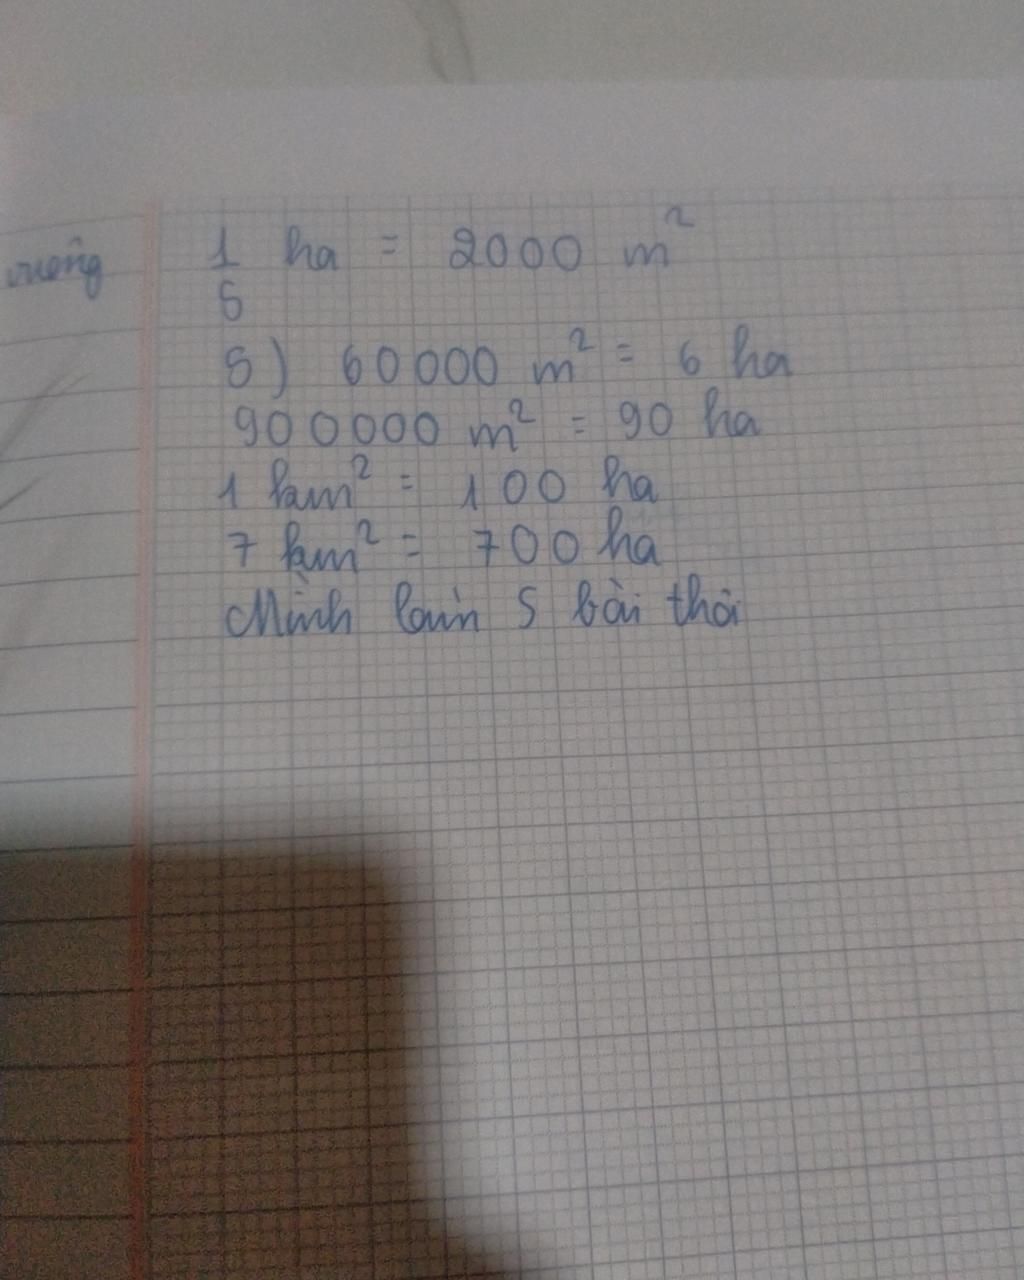 vuông
1 ha = 2000 m²
5
5) 60000 m² = 6 ha
900000 m² = 90 ha
1 km² = 100 ha
7 km² = 700 ha
Mình làm 5 bài thôi